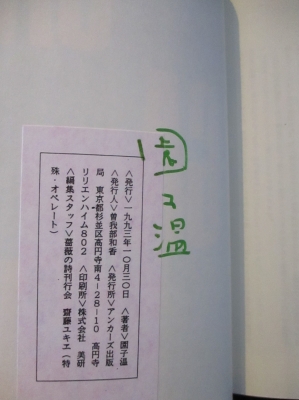 園子温
＜発行＞一九九三年一〇月三〇日　＜著者＞園子温
＜発行人＞曽我部和香　＜発行所＞アンカーズ出版
局　東京都杉並区高円寺南4-28-10　高円寺
リリエンハイム802　＜印刷所＞株式会社　美研
＜編集スタッフ＞薔薇の詩刊行会　齋藤ユキエ（特
殊・オペレート）